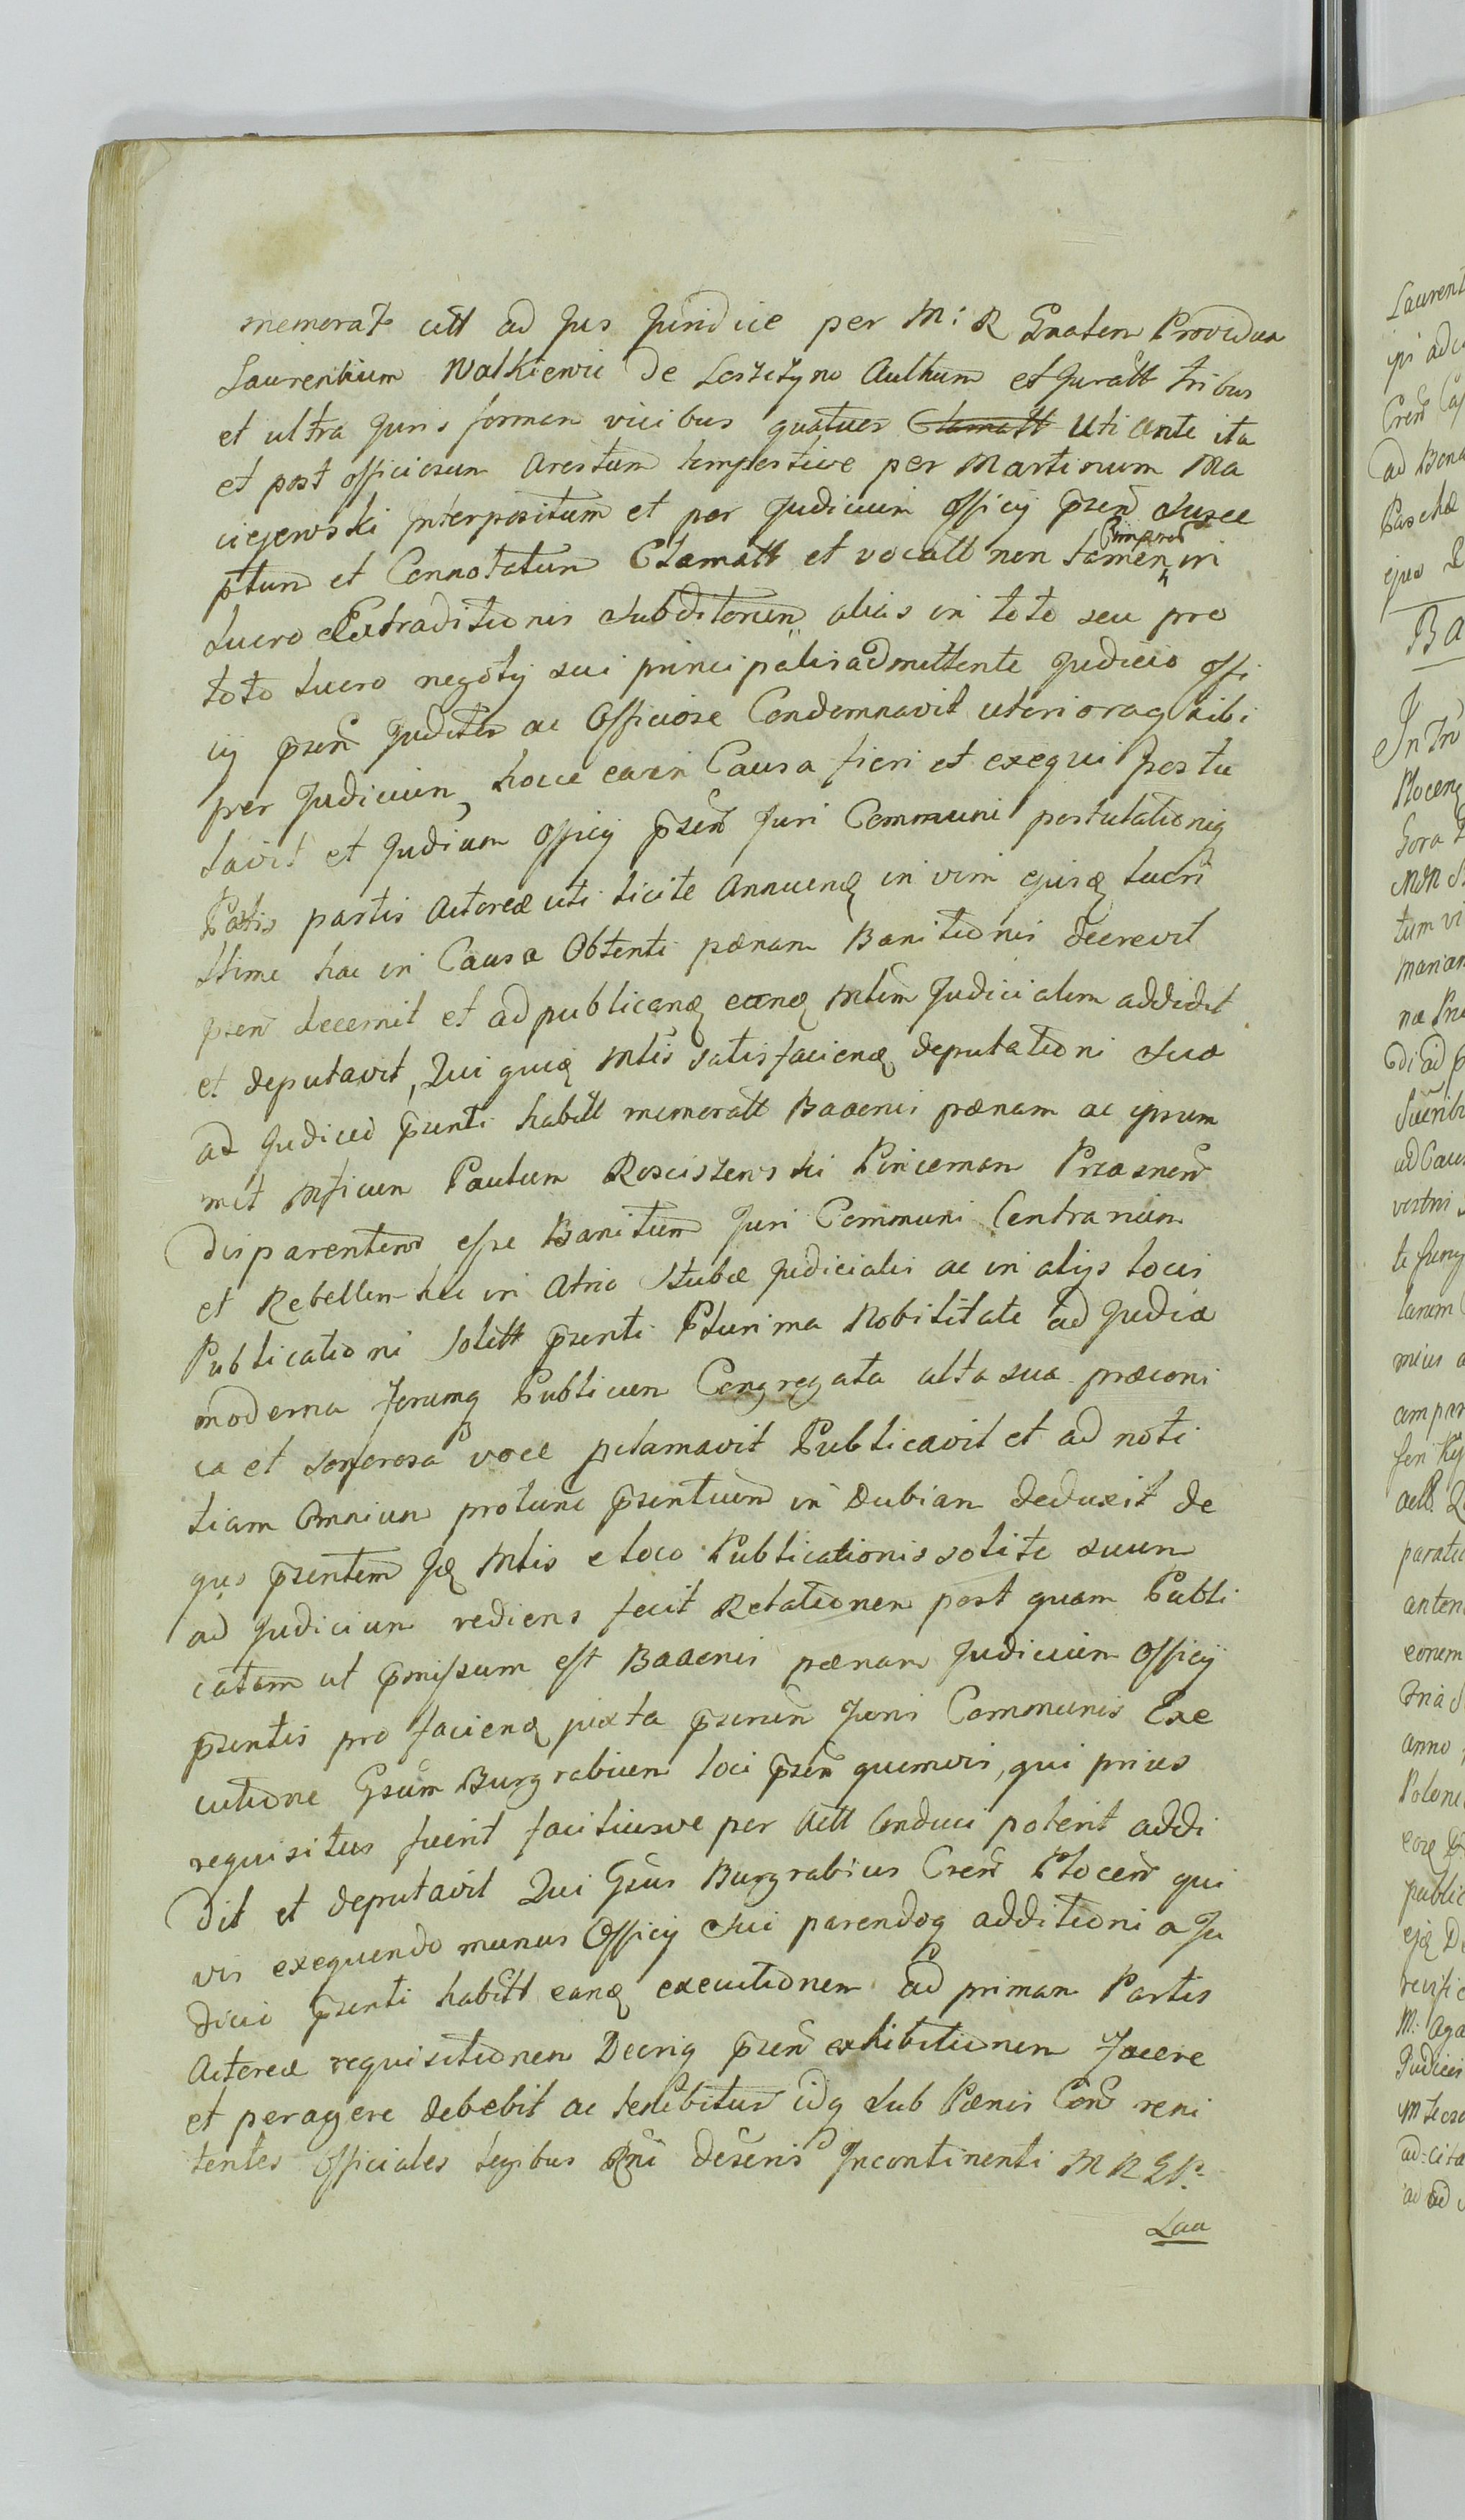 memorat citt ad Jus Juridice per M: R Gnalem Providum
Laurentium Walkiewic de Leszczyno Authum et Juratt tribus
et ultra Juris formam vicibus quatuor Clamatt Uti ante ita
et post officiosum Arestum tempestive per Martinum Ma
ciejewski Interpositum et per Judicium Officij p̄sen̄ Susce
ptum et Connotatum Clamatt et vocatt non tamen in
Lucro Extraditionis Subditorum alias in toto seu pro
toto Lucro negotij sui principalis admittente Judicio Offi
cij p̄sen̄ Judicter ac Officiose Condemnavit ulterioraq sibi
per Judicium hocce ea in Causa fieri et exequi postu
lavit et Judicium Officij p̄sen̄ Juri Communi postulationiq
partis Actoreæ uti licite Annuenq in vim ejusq Lucri
ltime hac in Causa Obtenti pænam Banitionis decrevit
p̄sen̄ decernit et ad publicanq eanq Mlem Judicialem addidit
et deputavit, Qui quiq Mlis satisfacienq deputationi Suæ
ad Judicio p̄senti habitt memoratt Baaonis pænam ac ipsum
met Mficum Paulum Rosciszewski Pincernam Prasnen̄
disparentem esse Banitum Juri Communi Contrarium
et Rebellem hic in Atrio Stubæ Judicialis ac in alijs locis
Publicationi Solitt p̄senti Plurima Nobilitate ad Judicia
moderna Forumq Publicum Congregata alta sua præconi
ca et Sonorosa voce pclamavit Publicavit et ad noti
tiam Omnium protunc p̄sentium in Dubiam deduxit de
quo p̄sentem Jq Mlis e loco Publicationis solite suum
ad Judicium rediens fecit Relationem post quam Publi
catam ut p̄missum est Baaonis pænam Judicium Officij
p̄sentis pro facienq juxta p̄scrium Juris Communis Exe
cutione Gsum Burgrabium loci p̄sen̄ quemvis, qui prius
requisitus fuerit faciliusve per Actt Conduci poterit addi
dit et deputavit Qui Gsus Burgrabius Cren̄ Plocen̄ qui
vis exequendo munus Officij Sui parendoq additioni a Ju
dicio p̄senti habitt eanq executionem ad primam Partis
Actoreæ requisitionem Decriq p̄sen̄ exhibitionem Facere
et peragere debebit ac tenebitur idq Sub Pænis Con̄ reni
tentes Officiales Legibus Rni descris Incontinenti M R G P.
Lau